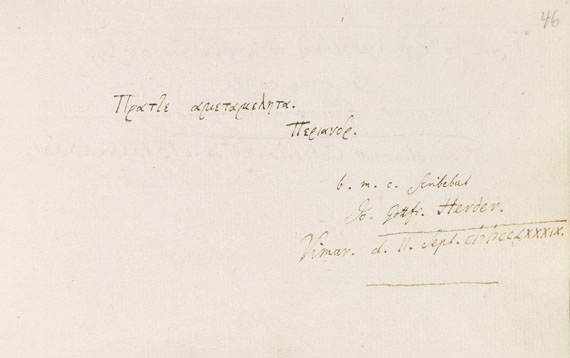 46
Πραττε αμεταμελητα.
Περιανδρ.
b. m. c. scribebat
Jo. Gottfr. Herder.
Vimar. d. 11. Sept. CIↃIↃCCLXXXIX.